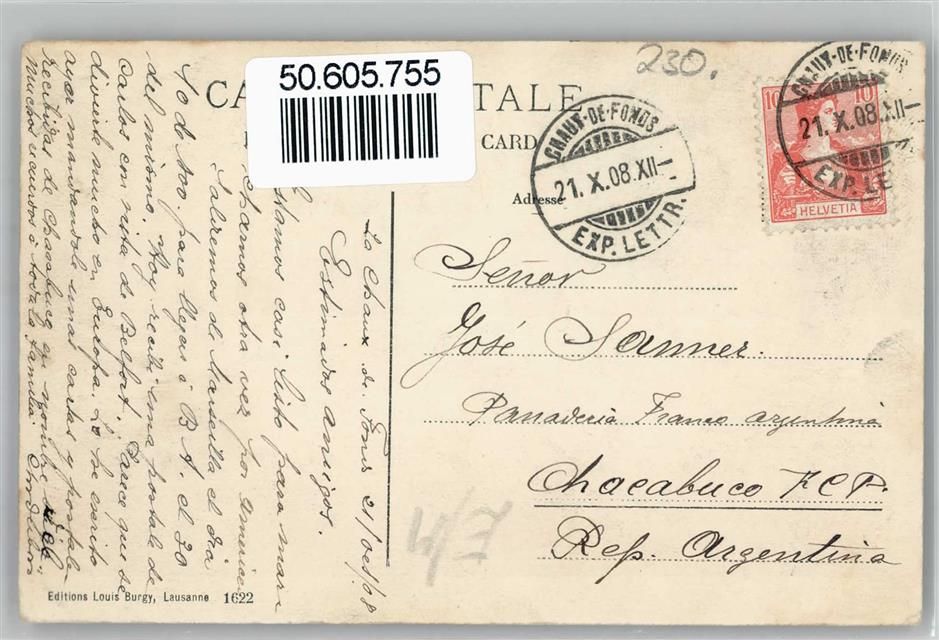 50.605.755
230.
CA TALE
CARD
Adresse
CHAUX-DE-FONDS
21.X.08.XII-
EXP. LETTR.
CHAUX-DE-FONDS
21.X.08.XII-
EXP. LE
10 10
HELVETIA
Señor
José Sanner.
Panaderia Franco argentina
Chacabuco F.C.P.
Rep. Argentina
La Chaux de Fons 21/oct/08
Estimados amigos.
Estamos casi listo para mar
charnos otra vez por America
Salremos de Marsella el dia
10 de Nov para llegar á B A el 30
del mismo. Hoy recibi una postale de
Carlos con vista de Belfort. Parece que se
divierte mucho en Europa. Lo he escrito
ayer mandandole unas cartas y postale
recibidas de Chacabuco
Muchos recuerdos á toda la familia
Editions Louis Burgy, Lausanne 1622